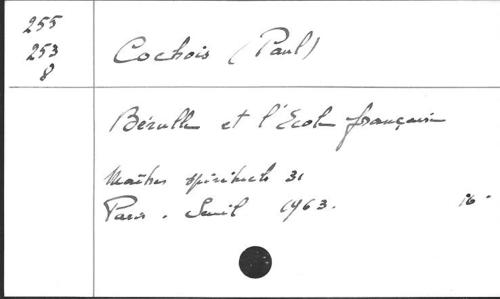 255
253
8
Cochois (Paul)
Bérulle et l'Ecole française
Maîtres spirituels 31
Paris. Seuil 1963. 16°